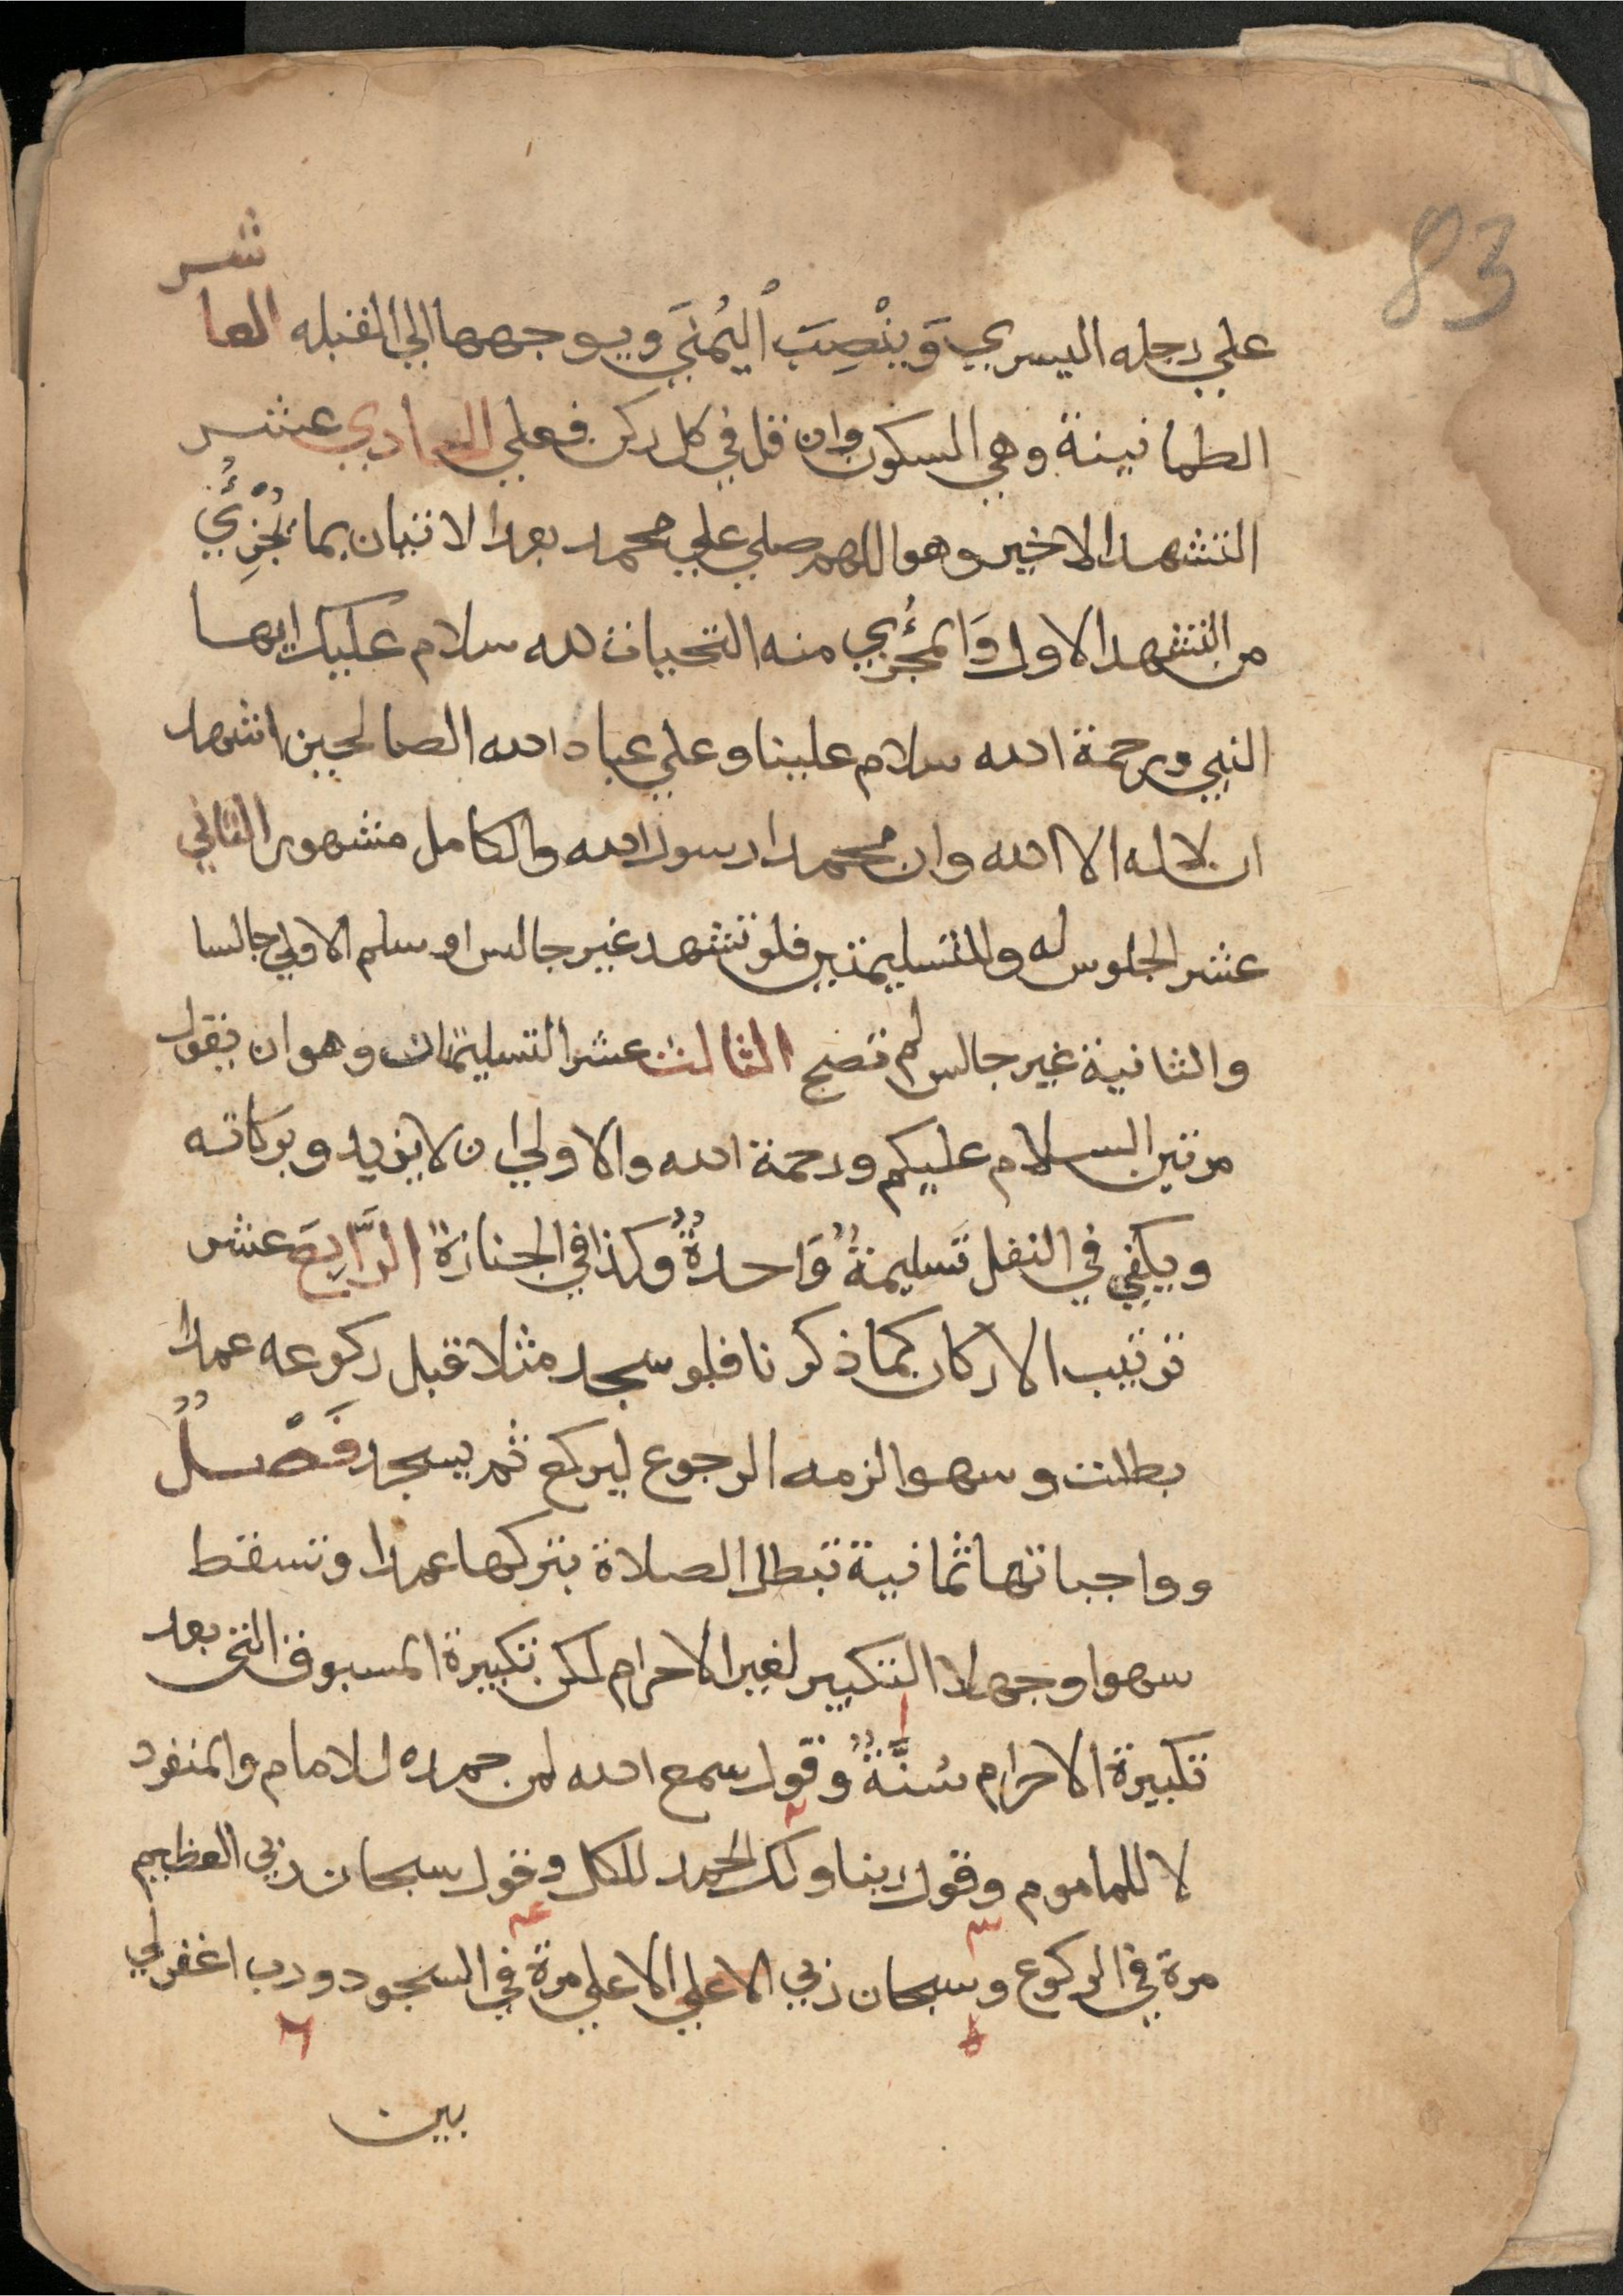 83
علي رجله اليسري وَينْصِبَ اْليُمْنَي ويوجهها الي القبله العا
شر
الطمانينة وهي السكون وان قل في كل ركن فعلي الحادي عشر
التشهد الاخير وهو اللهم صلي علي محمد بعد الاتيان بما يُجْزِئُي
من التشهد الاول وَالمجْزُئي منه التحيات لله سلام عليك ايها
النبي ورحمة الله سلام علينا وعلي عباد الله الصالحين اشهد
ان لا اله الا الله وان محمدا رسول الله والكامل مشهور الثاني
عشر الجلوس له وللتسليمتين فلو تشهد غير جالس او سلم الاولي جالسا
والثانية غير جالس لم تصح الثالث عشر التسليمتان وهو ان يقول
مرتين السلام عليكم ورحمة الله والاولي ان لا يزيد وبركاته
ويكفي في النفل تَسليمةٌ وَاحدةٌ وكذا في الجنازة الرَّابِعَ عشر
ترتيب الاركان كما ذكرنا فلو سجد مثلا قبل ركوعه عمدا
بطلت وسهوا لزمه الرجوع ليركع ثم يسجد فَصْلٌ
وواجباتها ثمانية تبطل الصلاة بتركها عمدا وتسقط
سهوا وجهلا التكبير لغير الاحرام لكن تكبيرة المسبوق التي بعد
١
تكبيرة الاحرام سُنَّةٌ وقول سمع الله لمن حمده للامام والمنفرد
٢
لا للماموم وقول ربنا ولك الحمد للكل وقول سبحان ربي العظيم
٣ ٤
مرة في الركوع وسبحان ربي الاعلي الاعلي مرة في السجود ورب اغفر لي
٥ ٦
بين